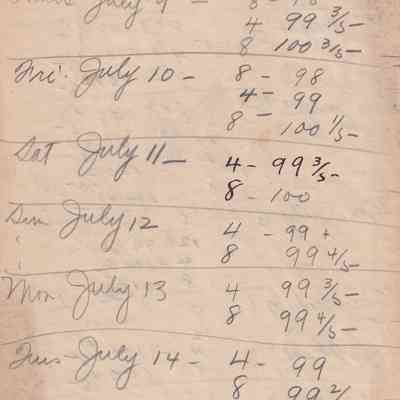 July 9 - 8 - 98
4 99 3/5 -
8 100 3/5 -
Fri. July 10 - 8 - 98
4 - 99
8 - 100 1/5 -
Sat July 11 - 4 - 99 3/5 -
8 - 100
Sun July 12 4 - 99 +
8 99 4/5 -
Mon. July 13 4 99 3/5 -
8 99 4/5 -
Tues - July 14 - 4 - 99
8 99 2/